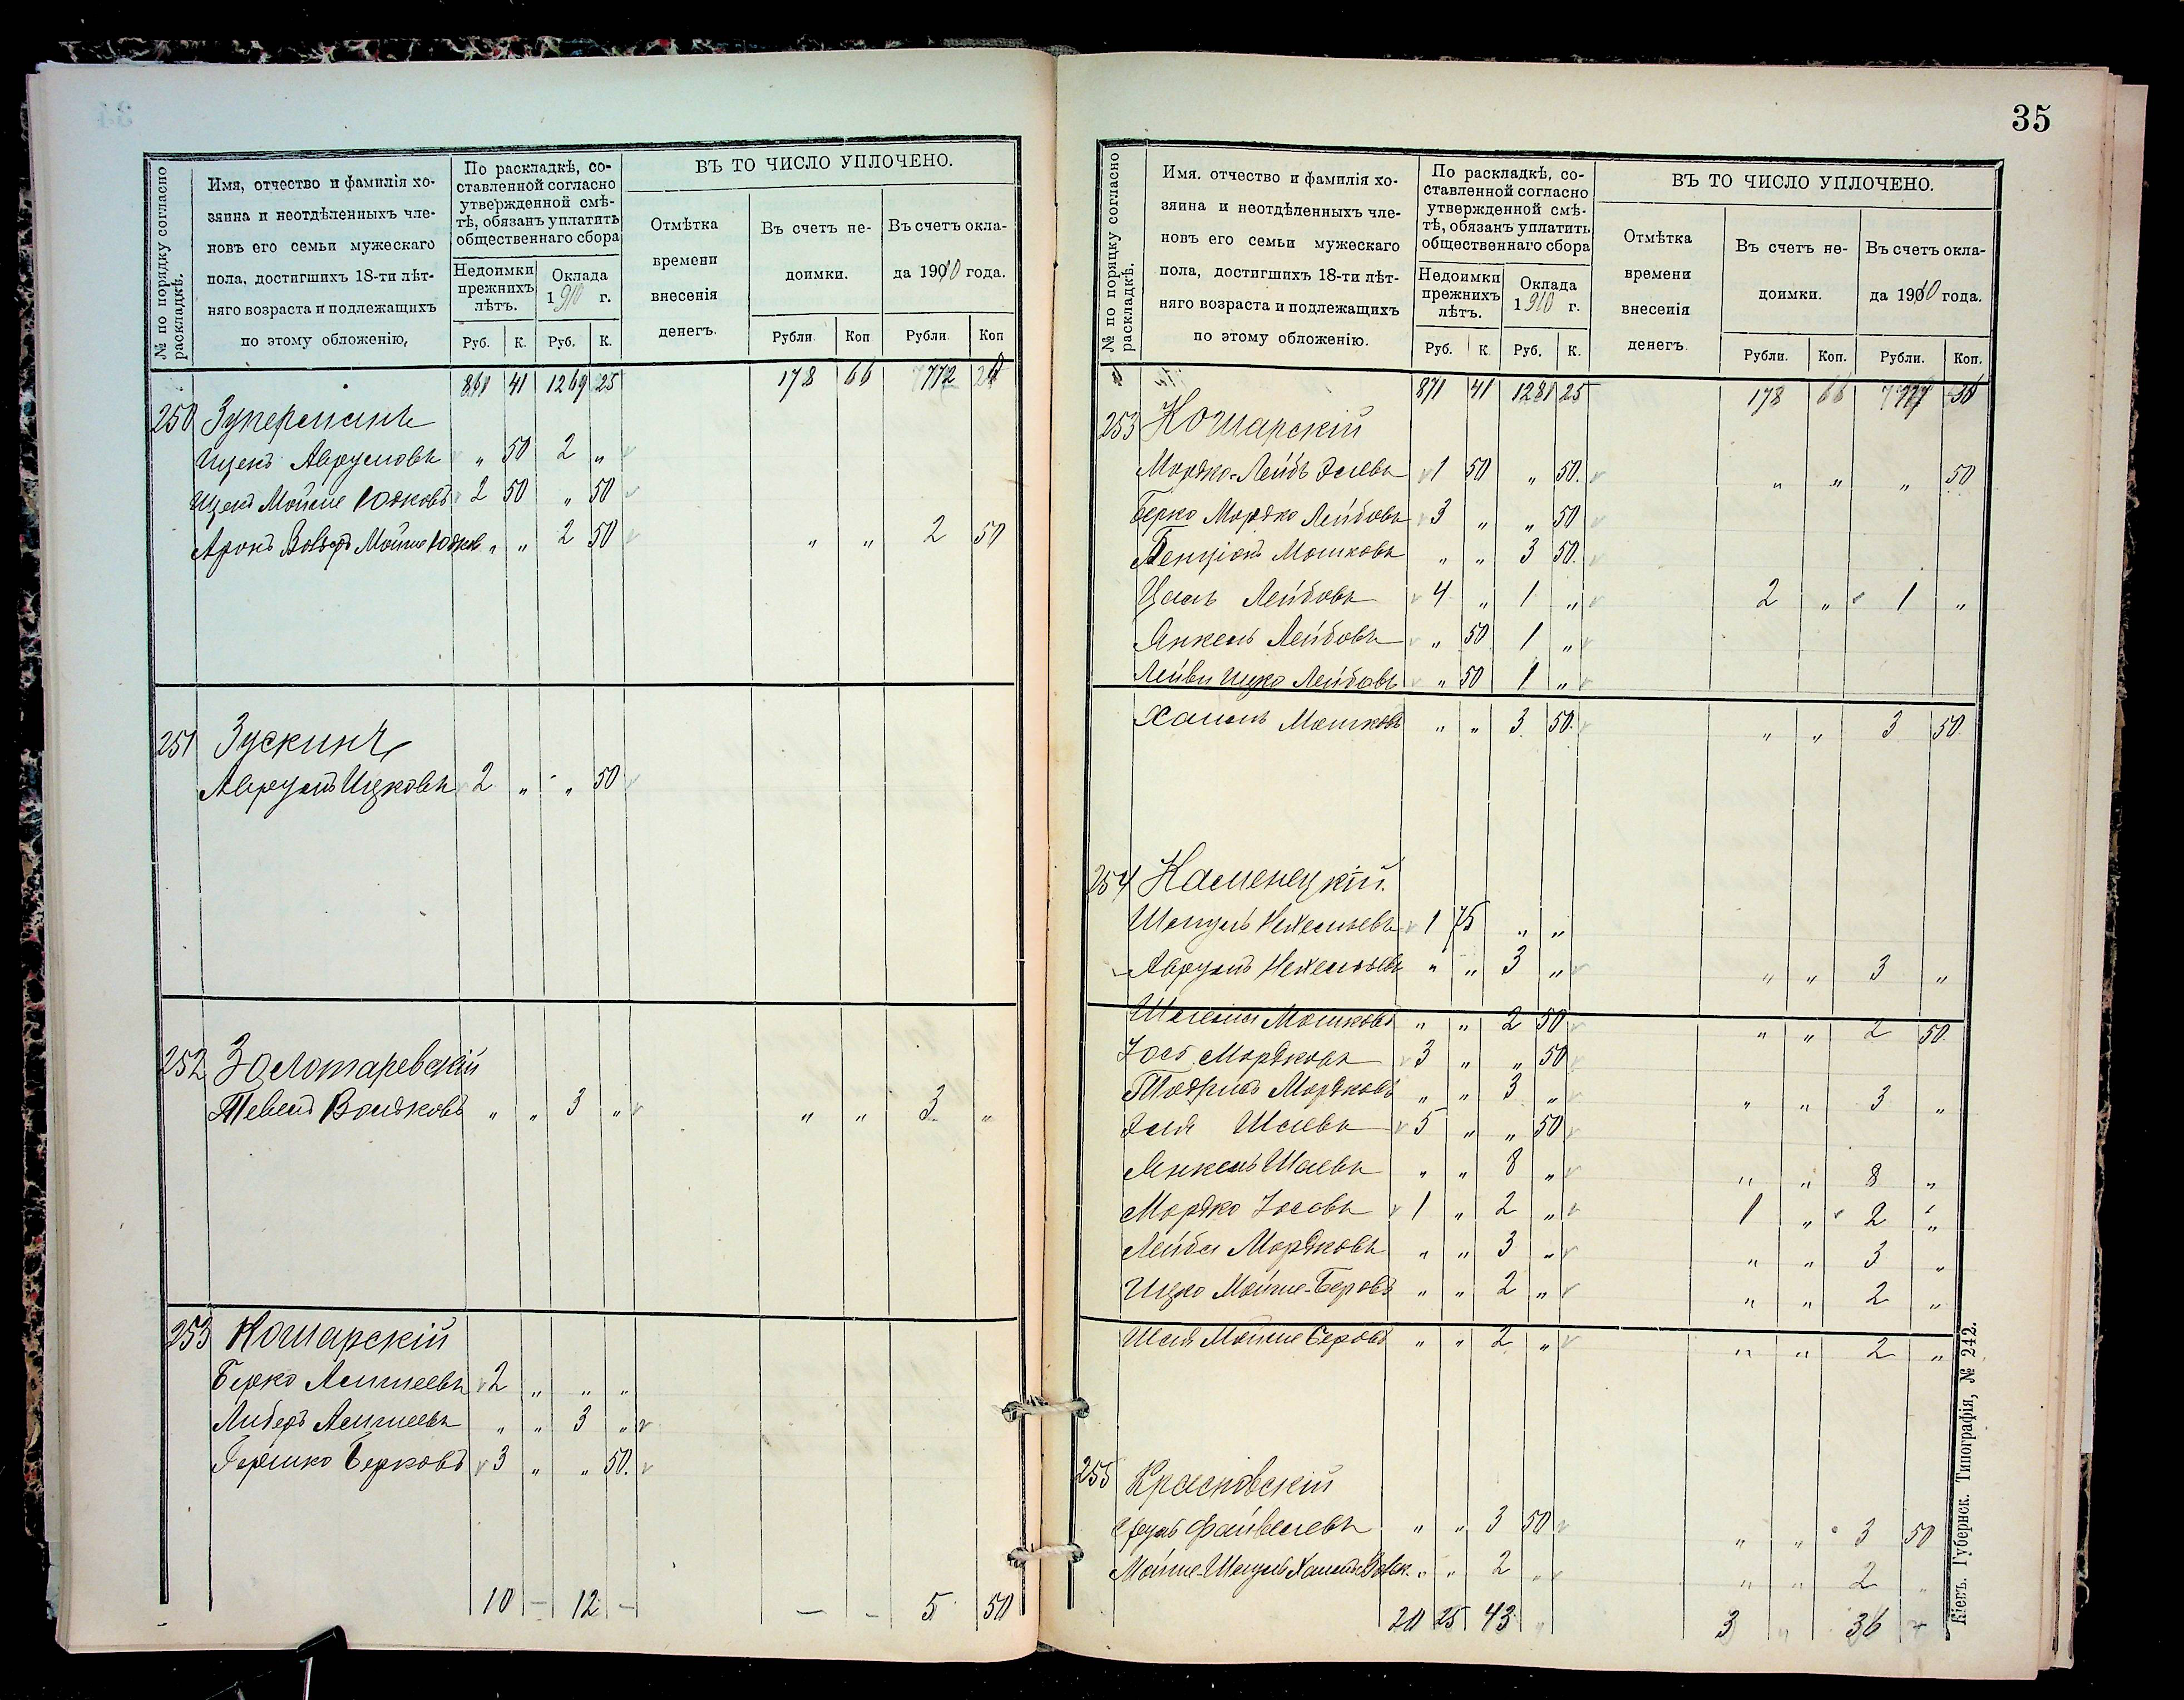 № по порядку согласно раскладкѣ.
Имя, отчество и фамилія хо-
зяина и неотдѣленныхъ чле-
новъ его семьи мужескаго
пола, достигшихъ 18-ти лѣт-
няго возраста и подлежащихъ
по этому обложенію,
По раскладкѣ, со-
ставленной согласно
утвержденной смѣ-
тѣ, обязанъ уплатить
общественнаго сбора
Недоимки прежнихъ лѣтъ.
Оклада 1910 г.
Руб. К. Руб. К.
ВЪ ТО ЧИСЛО УПЛОЧЕНО.
Отмѣтка
времени
внесенія
денегъ.
Въ счетъ не-
доимки.
Въ счетъ окла-
да 1910 года.
Рубли. Коп Рубли. Коп
861 41 1269 25 178 66 772
250 Зуперманъ
Ицекъ Аврумовъ „ 50 2 „
Ицекъ Мойше Юдковъ 2 50 „ 50
Аронъ Вольфъ Мойше Юдков „ „ 2 50 „ „ 2 50
251 Зускинъ
Аврумъ Ицковъ 2 „ „ 50
252 Золотаревскій
Тевель Волковъ „ „ 3 „ „ „ 3 „
253 Кошарскій
Берко Авишеевъ 2 „ „ „
Либеръ Авишеевъ „ „ 3 „
Гершко Берковъ 3 „ „ 50.
10 — 12 — — - 5 50
35
№ по порядку согласно раскладкѣ.
Имя. отчество и фамилія хо-
зяина и неотдѣленныхъ чле-
новъ его семьи мужескаго
пола, достигшихъ 18-ти лѣт-
няго возраста и подлежащихъ
по этому обложенію.
По раскладкѣ, со-
ставленной согласно
утвержденной смѣ-
тѣ, обязанъ уплатить
общественнаго сбора
Недоимки прежнихъ лѣтъ.
Оклада 1910 г.
Руб. К Руб. К.
ВЪ ТО ЧИСЛО УПЛОЧЕНО.
Отмѣтка
времени
внесенія
денегъ.
Въ счетъ не-
доимки.
Въ счетъ окла-
да 1910 года.
Рубли. Коп. Рубли. Коп.
871 41 1281 25 178 66 777
253 Кошарскій
Мордко-Лейбъ Эльевъ 1 50 „ 50. „ „ „ 50
Берко Мордко Лейбовъ 3 „ „ 50
Бенціонъ Мошковъ „ „ 3 50.
Цаль Лейбовъ 4 „ 1 „ 2 „ 1 „
Янкель Лейбовъ „ 50 1 „
Лейви Ицко Лейбовъ „ 50 1 „
Хаимъ Мошковъ „ „ 3 50. „ „ 3 50.
254 Каменецкій.
Шмуль Нехемьевъ 1 75 „ „
Аврумъ Нехемьевъ „ „ 3 „ „ „ 3 „
Мошковъ „ „ 2 50 „ „ 2 50
Іось Мордковъ 3 „ „ 50
Тодрисъ Мордковъ „ „ 3 „ „ „ 3 „
Эля Шаевъ 5 „ „ 50
Янкель Шаевъ „ „ 8 „ „ „ 8 „
Мордко Іосевъ 1 „ 2 „ 1 „ 2 „
Лейба Мордковъ „ „ 3 „ „ „ 3 „
Ицко Мойше-Беровъ „ „ 2 „ „ „ 2 „
Шая Мойше Беровъ „ „ 2 „ „ „ 2 „
255 Красновскій
Сруль Файвелевъ „ „ 3 50 „ „ 3 50
Мойше-Шмуль „ „ 2 „ „ „ 2 „
20 25 43 „ 3 „ 36 —
Кіевъ. Губернск. Типографія, № 242.